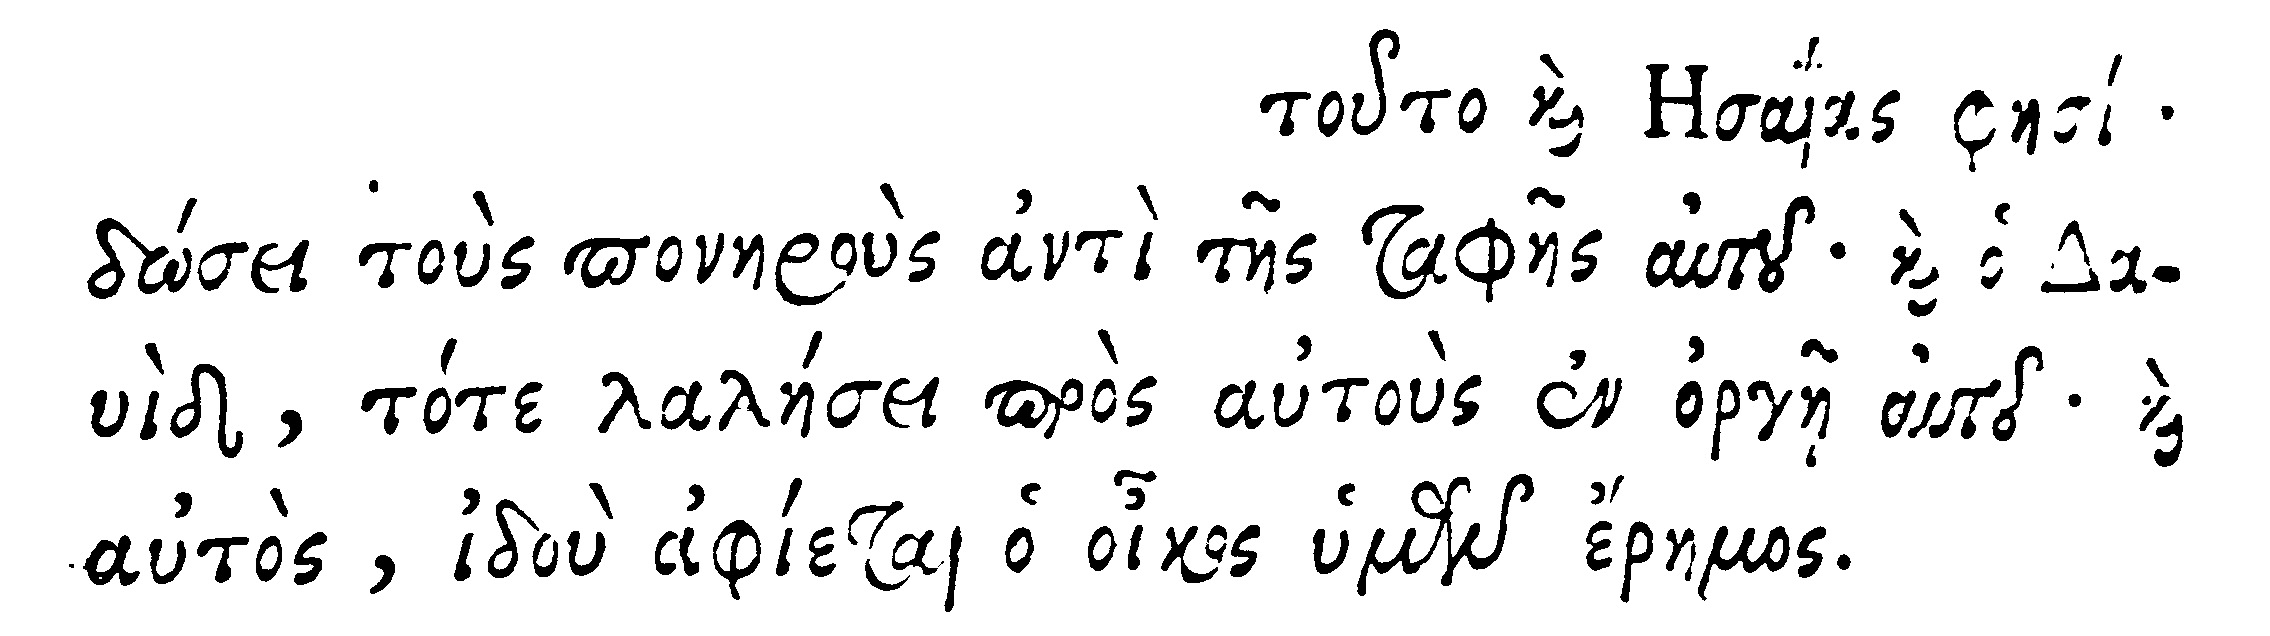 τοῦτο ϗ̀ Ησαΐας φησί ·
δώσει τοὺς πονηροὺς ἀντὶ τῆς ταφῆς αὐτοῦ · ϗ̀ ὁ Δα-
υὶδ, τότε λαλήσει πρὸς αὐτοὺς ἐν ὀργῇ αὐτοῦ · ϗ̀
αὐτὸς, ἰδοὺ ἀφίεται ὁ οἶκος ὑμῶν ἔρημος.